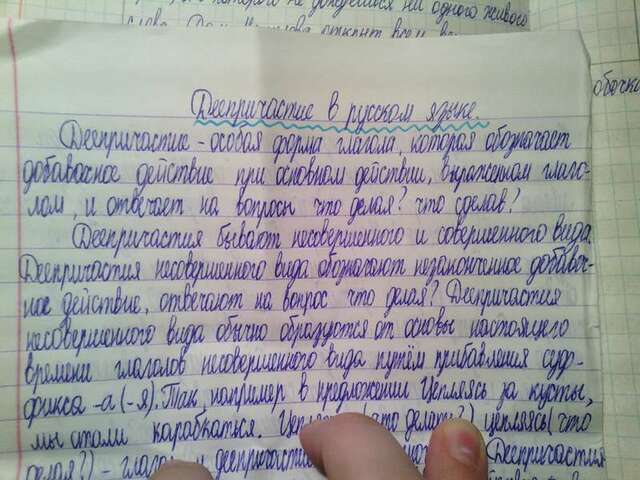 которого не дождешься ни одного живого
слова.
обочки
Деепричастие в русском языке.
Деепричастие - особая форма глагола, которая обозначает
добавочное действие при основном действии, выраженном глаго-
лом, и отвечает на вопросы что делая? что сделав?
Деепричастия бывают несовершенного и совершенного вида.
Деепричастия несовершенного вида обозначают незаконченное добавоч-
ное действие, отвечают на вопрос что делая? Деепричастия
несовершенного вида обычно образуются от основы настоящего
времени глаголов несовершенного вида путём прибавления суф-
фикса -а (-я). Так, например в предложении Цепляясь за кусты,
мы стали карабкаться. (что делать?) цепляясь (что
делая?) - Деепричастия